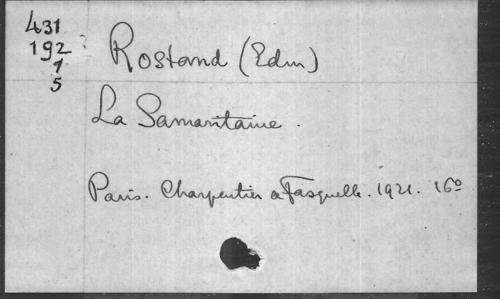 431
192
1
5
Rostand (Edm)
La Samaritaine.
Paris. Charpentier & Fasquelle. 1921. 16º